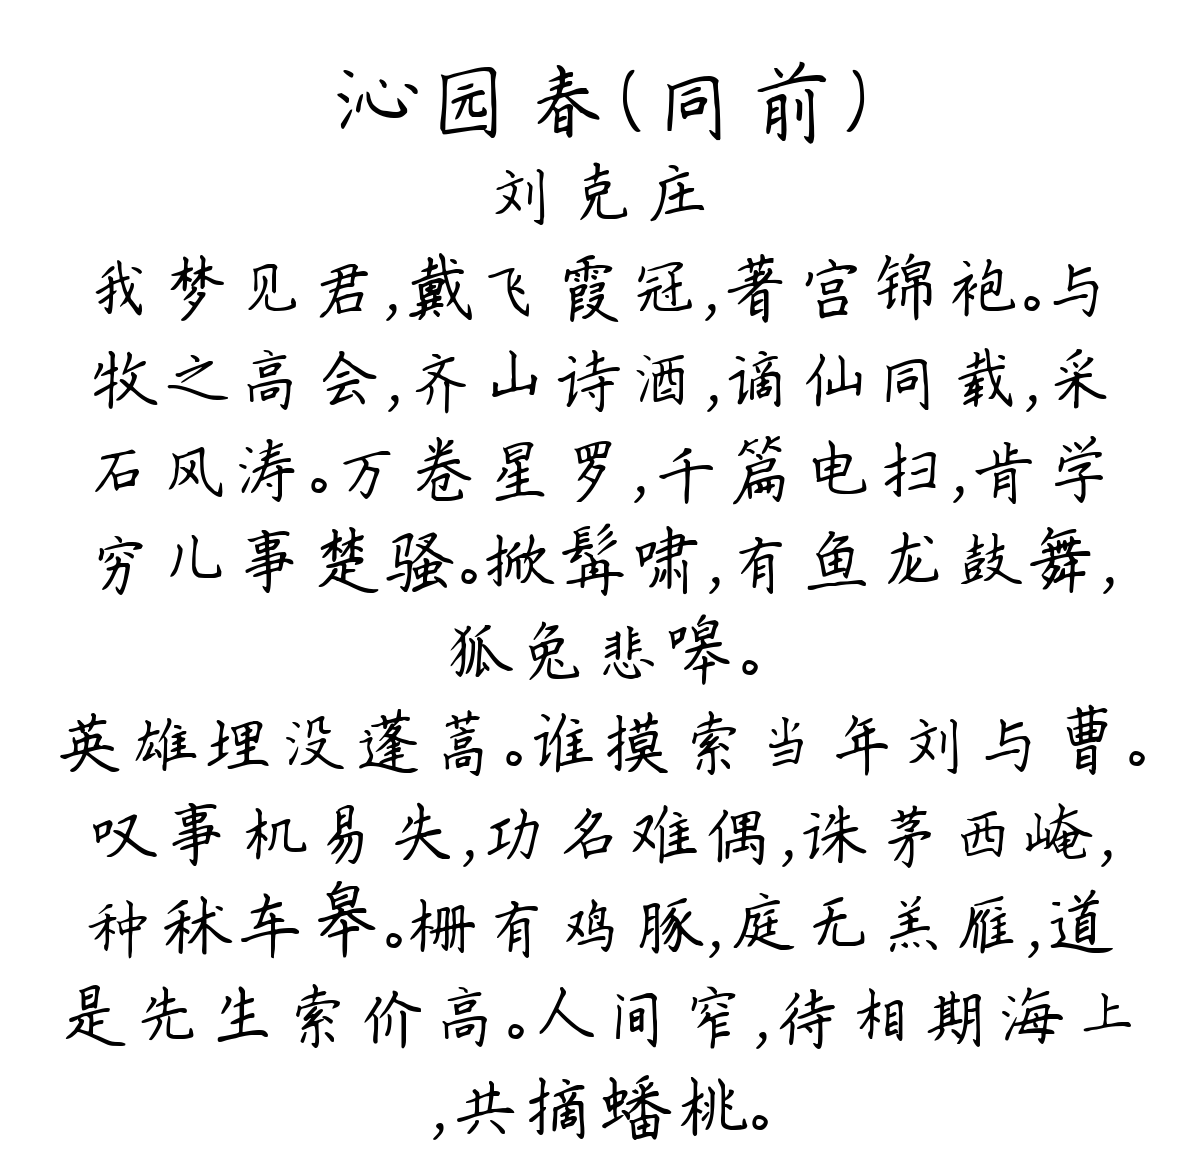 沁园春(同前)
刘克庄
我梦见君,戴飞霞冠,著宫锦袍。与
牧之高会,齐山诗酒,谪仙同载,采
石风涛。万卷星罗,千篇电扫,肯学
穷儿事楚骚。掀髯啸,有鱼龙鼓舞,
狐兔悲嗥。
英雄埋没蓬蒿。谁摸索当年刘与曹。
叹事机易失,功名难偶,诛茅西崦,
种秫车皋。栅有鸡豚,庭无羔雁,道
是先生索价高。人间窄,待相期海上
,共摘蟠桃。